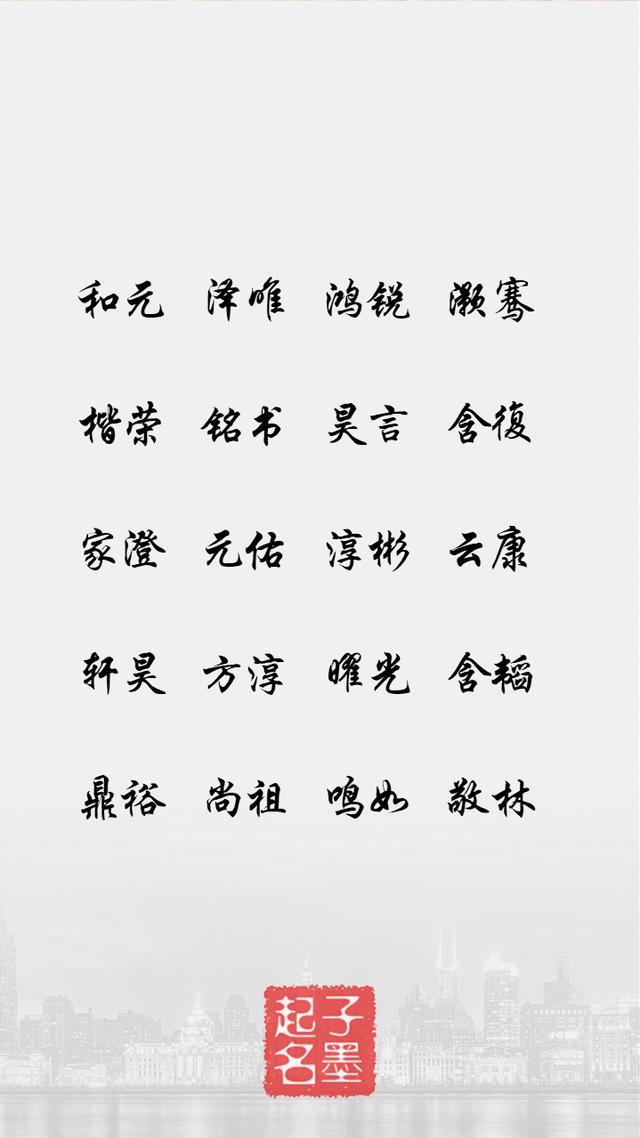 和元 泽唯 鸿锐 灏骞
楷荣 铭书 昊言 含復
家澄 元佑 淳彬 云康
轩昊 方淳 曜光 含韬
鼎裕 尚祖 鸣如 敬林
子墨
起名